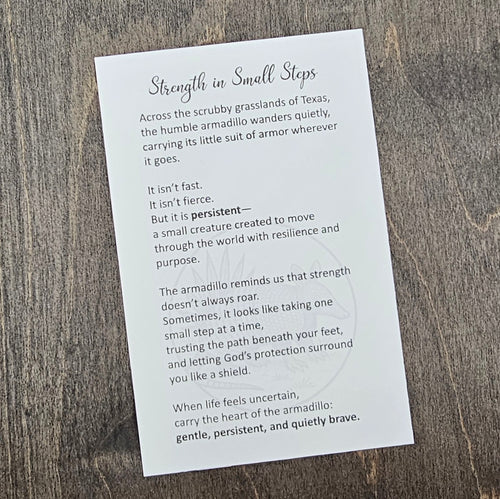 Strength in Small Steps
Across the scrubby grasslands of Texas,
the humble armadillo wanders quietly,
carrying its little suit of armor wherever
it goes.
It isn't fast.
It isn't fierce.
But it is persistent—
a small creature created to move
through the world with resilience and
purpose.
The armadillo reminds us that strength
doesn't always roar.
Sometimes, it looks like taking one
small step at a time,
trusting the path beneath your feet,
and letting God's protection surround
you like a shield.
When life feels uncertain,
carry the heart of the armadillo:
gentle, persistent, and quietly brave.